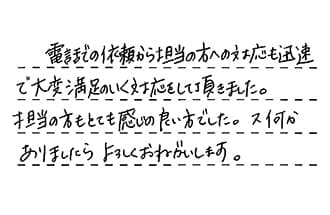 電話での依頼から担当の方への対応も迅速
で大変満足のいく対応をして頂きました。
担当の方もとても感じの良い方でした。又何か
ありましたら よろしくおねがいします。